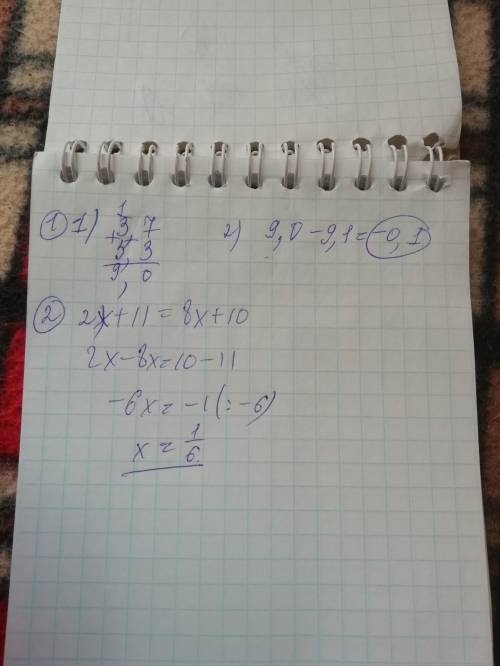 ① 1) 1
3,7
+ 5,3
9,0
2) 9,0 - 9,1 = -0,1
② 2x + 11 = 8x + 10
2x - 8x = 10 - 11
-6x = -1 (: -6)
x = 1/6